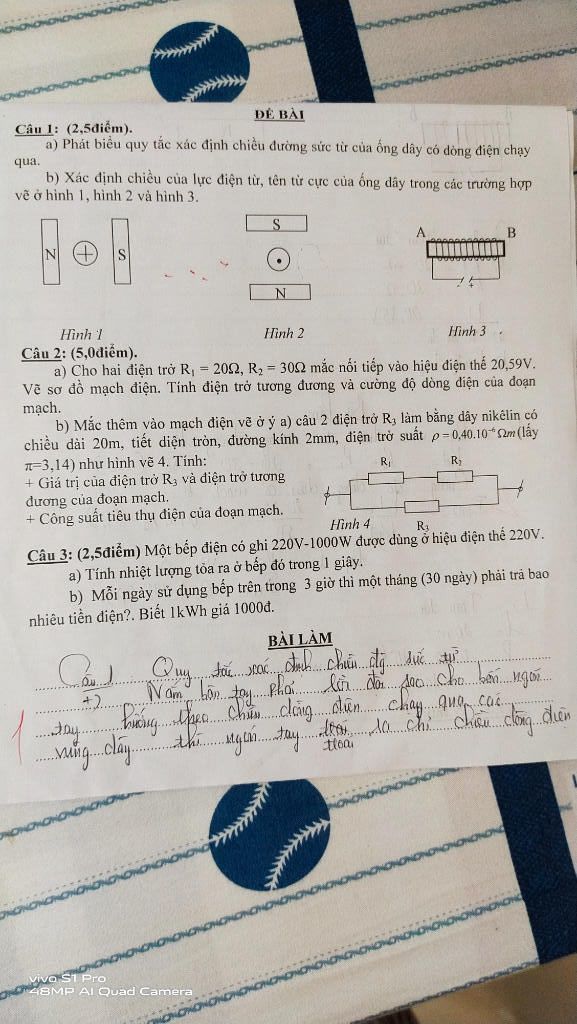 ĐỀ BÀI
Câu 1: (2,5điểm).
a) Phát biểu quy tắc xác định chiều đường sức từ của ống dây có dòng điện chạy
qua.
b) Xác định chiều của lực điện từ, tên từ cực của ống dây trong các trường hợp
vẽ ở hình 1, hình 2 và hình 3.
N S
S
N
A B
Hình 1 Hình 2 Hình 3
Câu 2: (5,0điểm).
a) Cho hai điện trở R₁ = 20Ω, R₂ = 30Ω mắc nối tiếp vào hiệu điện thế 20,59V.
Vẽ sơ đồ mạch điện. Tính điện trở tương đương và cường độ dòng điện của đoạn
mạch.
b) Mắc thêm vào mạch điện vẽ ở ý a) câu 2 điện trở R₃ làm bằng dây nikêlin có
chiều dài 20m, tiết diện tròn, đường kính 2mm, điện trở suất ρ = 0,40.10⁻⁶ Ωm (lấy
π=3,14) như hình vẽ 4. Tính:
+ Giá trị của điện trở R₃ và diện trở tương
đương của đoạn mạch.
+ Công suất tiêu thụ điện của đoạn mạch.
R₁ R₂
R₃
Hình 4
Câu 3: (2,5điểm) Một bếp điện có ghi 220V-1000W được dùng ở hiệu điện thế 220V.
a) Tính nhiệt lượng tỏa ra ở bếp đó trong 1 giây.
b) Mỗi ngày sử dụng bếp trên trong 3 giờ thì một tháng (30 ngày) phải trả bao
nhiêu tiền điện?. Biết 1kWh giá 1000đ.
BÀI LÀM
Câu 1 Quy tắc xác định chiều đg sức từ
Nắm bàn tay phải rồi đặt sao cho bốn ngón
tay hướng theo chiều dòng điện chạy qua các
vùng dây thì ngón tay thoai ra chỉ chiều dòng điện
1
vivo S1 Pro
48MP AI Quad Camera